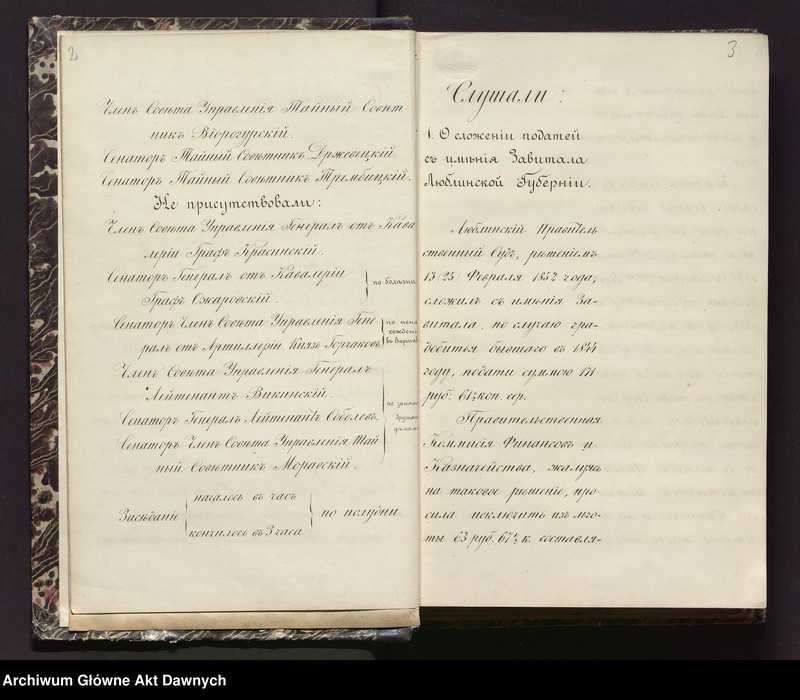 2
Членъ Совѣта Управленія Тайный Совѣт
никъ Віорогурскій.
Сенаторъ Тайный Совѣтникъ Држевецкій
Сенаторъ Тайный Совѣтникъ Трембицкій.
Не присутствовали:
Членъ Совѣта Управленія Генералъ отъ Кава
леріи Графъ Красинскій.
Сенаторъ Генералъ отъ Кавалеріи
Графъ Ожаровскій.
по болѣзни
Сенаторъ Членъ Совѣта Управленія Гене-
ралъ отъ Артиллеріи Князь Горчаковъ
по нена
хожденію
въ Варшавѣ
Членъ Совѣта Управленія Генералъ
Лейтенантъ Викинскій.
Сенаторъ Генералъ Лейтенантъ Соболевъ.
Сенаторъ Членъ Совѣта Управленія Тай
ный Совѣтникъ Моравскій.
по занят
другими
дѣлами
Засѣданіе
началось въ часъ
кончилось въ 3 часа
по полудни
3
Слушали:
1. О сложеніи податей
съ имѣнія Завитала
Люблинской Губерніи.
Люблинскій Правитель
ственный Судъ, рѣшеніемъ
13 (25) Февраля 1852 года,
сложилъ съ имѣнія За-
витала, по случаю гра-
добитья бывшаго въ 1844
году, подати суммою 171
руб: 61½ коп. сер.
Правительственная
Коммисія Финансовъ и
Казначейства, жалуясь
на таковое рѣшеніе, про
сила исключить изъ льго-
ты 63 руб. 67½ к. составля-
Archiwum Główne Akt Dawnych